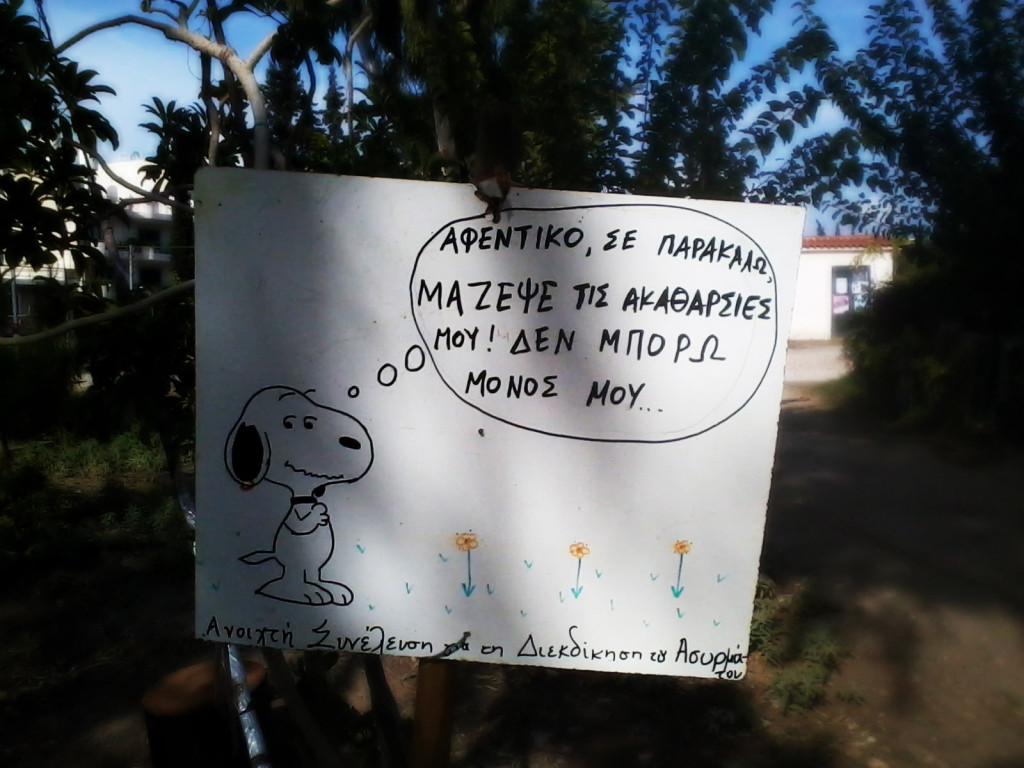 ΑΦΕΝΤΙΚΟ, ΣΕ ΠΑΡΑΚΑΛΩ,
ΜΑΖΕΨΕ ΤΙΣ ΑΚΑΘΑΡΣΙΕΣ
ΜΟΥ! ΔΕΝ ΜΠΟΡΩ
ΜΟΝΟΣ ΜΟΥ...
Ανοιχτή Συνέλευση για τη Διεκδίκηση του Ασυρμά-
του